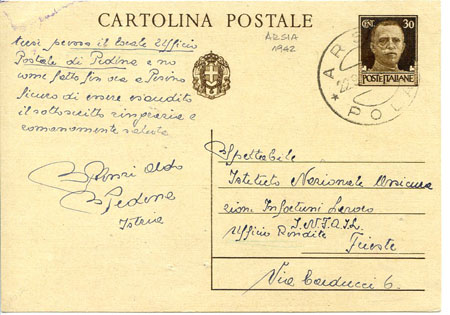 CARTOLINA POSTALE
ARSIA
1942
CENT. 30
POSTE ITALIANE
ARS
22
POLA
presso il locale Ufficio
Postale di Pedena e no
come fatto fin ora a Pisino
sicuro di essere esaudito
il sottoscritto ringrazia e
romanamente saluta
Aldo
Pedena
Istria
Spettabile
Istituto Nazionale Assicura
zioni Infortuni Lavoro
I.N.F.A.I.L.
Ufficio Rendite
Trieste
Via Carducci 6.